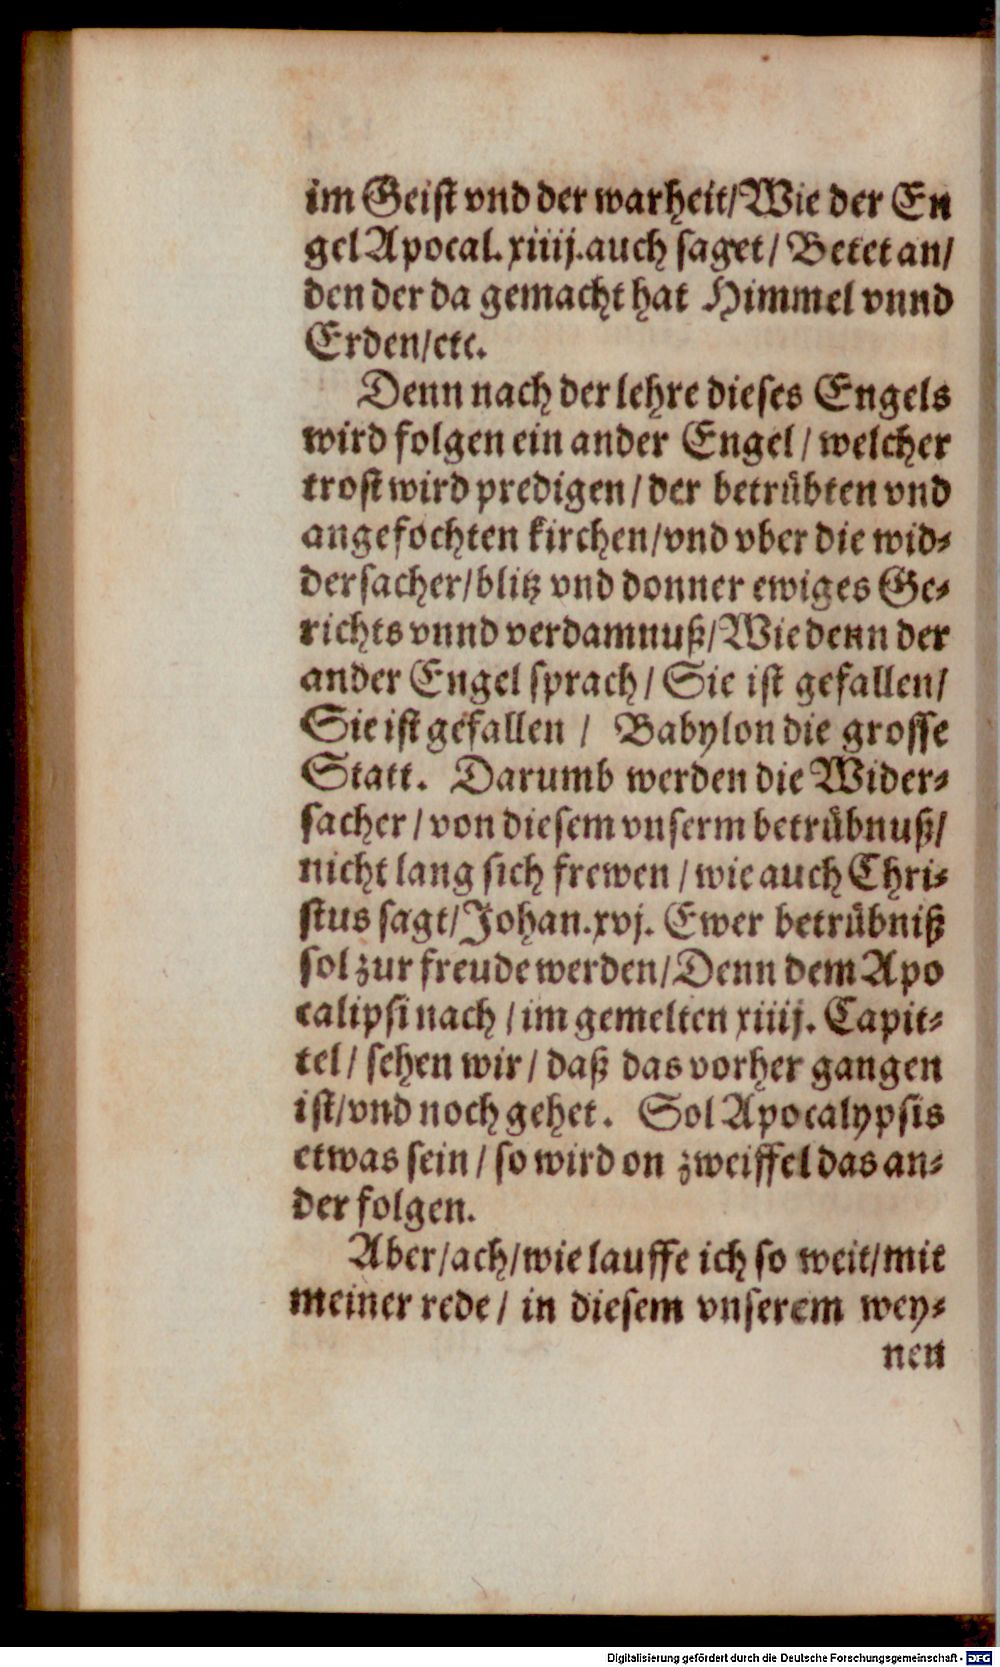 im Geist vnd der warheit/Wie der En
gel Apocal. xiiij. auch saget/ Betet an/
den der da gemacht hat Himmel vnnd
Erden/etc.
Denn nach der lehre dieses Engels
wird folgen ein ander Engel/ welcher
trost wird predigen/ der betrübten vnd
angefochten kirchen/vnd vber die wid-
dersacher/blitz vnd donner ewiges Ge-
richts vnnd verdamnuß/Wie denn der
ander Engel sprach/ Sie ist gefallen/
Sie ist gefallen / Babylon die grosse
Statt. Darumb werden die Wider-
sacher/ von diesem vnserm betrübnuß/
nicht lang sich frewen / wie auch Chri-
stus sagt/Johan.xvj. Ewer betrübniß
sol zur freude werden/Denn dem Apo
calipsi nach / im gemelten xiiij. Capit-
tel/ sehen wir/ daß das vorher gangen
ist/vnd noch gehet. Sol Apocalypsis
etwas sein / so wird on zweiffel das an-
der folgen.
Aber/ach/wie lauffe ich so weit/mit
meiner rede/ in diesem vnserem wey-
nen
Digitalisierung gefördert durch die Deutsche Forschungsgemeinschaft - DFG